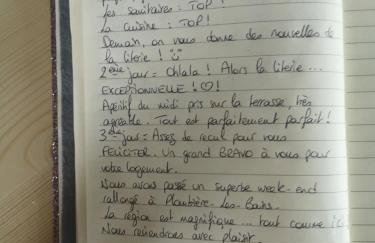 Les sanitaires : TOP !
La cuisine : TOP !
Demain, on vous donne des nouvelles de
la literie !
2ème jour = Ohlala ! Alors la literie ...
EXCEPTIONNELLE ! ♡ !
Apéritif du midi pris sur la terrasse, très
agréable. Tout est parfaitement parfait !
3ème jour = Assez de recul pour vous
FELICITER. Un grand BRAVO à vous pour
votre logement.
Nous avons passé un superbe week-end
rallongé à Plombière-les-Bains.
La région est magnifique ... tout comme ici.
Nous reviendrons avec plaisir.